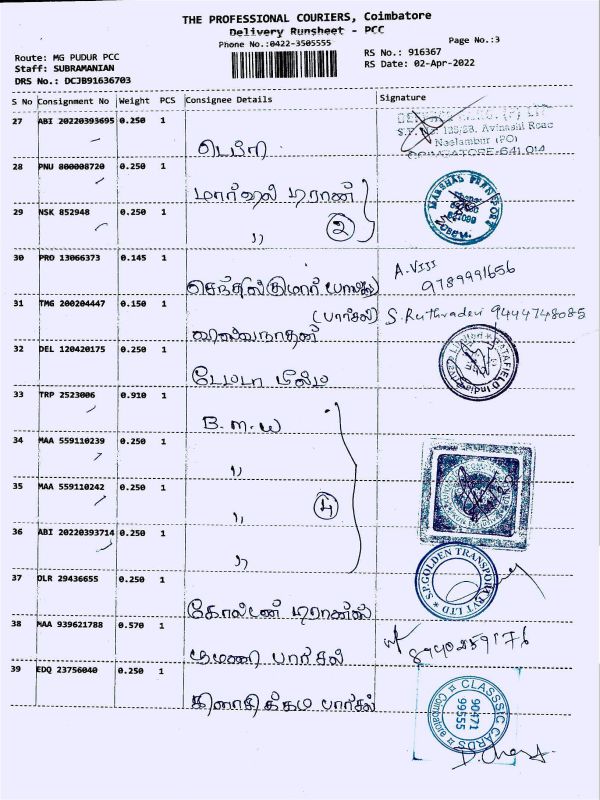 THE PROFESSIONAL COURIERS, Coimbatore
Delivery Runsheet - PCC
Phone No.:0422-3505555
Page No.:3
Route: MG PUDUR PCC
Staff: SUBRAMANIAN
DRS No.: DCJB91636703
RS No.: 916367
RS Date: 02-Apr-2022
S No Consignment No Weight PCS Consignee Details Signature
27 ABI 20220393695 0.250 1
S.F. No. 125/2B, Avinashi Road
Neelambur (PO)
COIMBATORE-641 014
டெபி
28 PNU 800008720 0.250 1
மார்ஷல் டிரான்
MARSHAL TRANSPORT
29 NSK 852948 0.250 1
,, 2
30 PRO 13066373 0.145 1
செந்தில்குமார்
A.Viji
9789991656
31 TMG 200204447 0.150 1
(பார்சல்) S.Ruthradevi 9444748085
விஸ்வநாதன்
32 DEL 120420175 0.250 1
டேட்டா பீல்டு
DATAFIELD India
33 TRP 2523006 0.910 1
B.M.W
34 MAA 559110239 0.250 1
,,
35 MAA 559110242 0.250 1
,, 4
36 ABI 20220393714 0.250 1
,,
S.P.GOLDEN TRANSPORT PVT LTD
37 DLR 29436655 0.250 1
கோல்டன் டிரான்ஸ்
38 MAA 939621788 0.570 1
8940259176
ரமணி பார்சல்
39 EDQ 23756040 0.250 1
கிளாசிக்கம் பார்சல்
CLASSSIC CARDS
90471
99555
Coimbatore